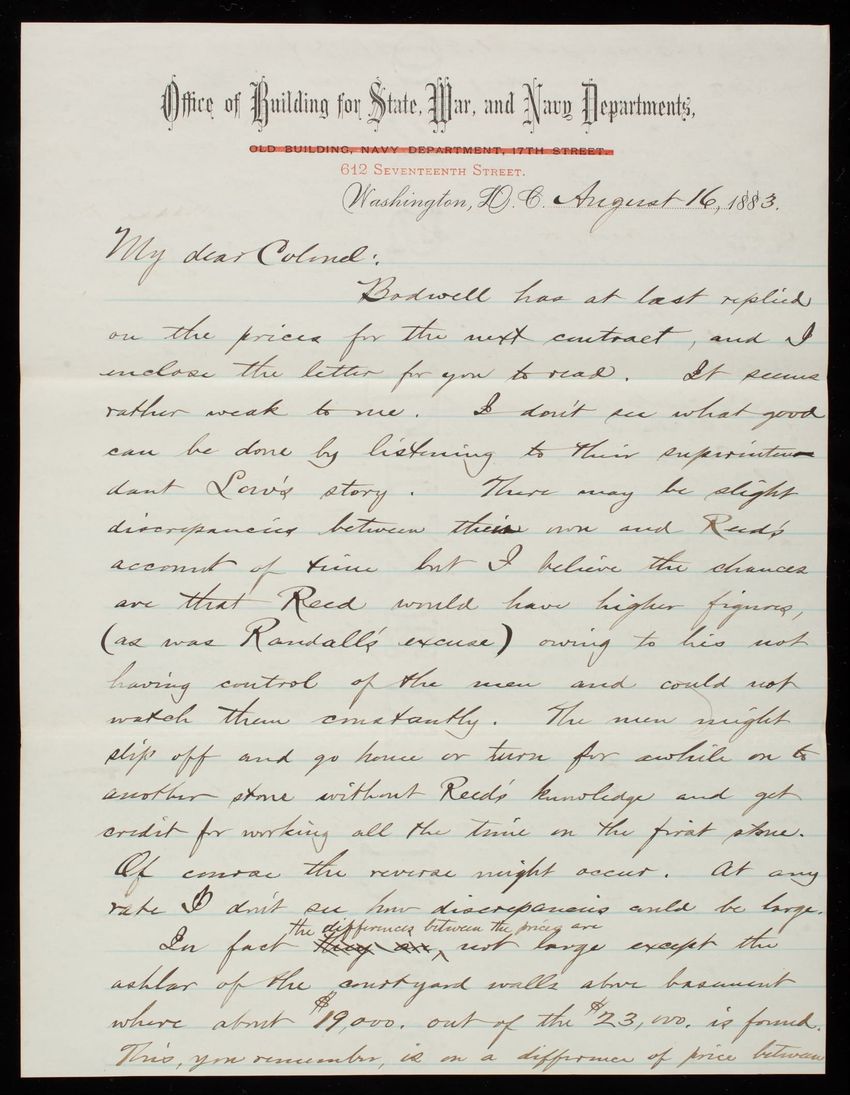 Office of Building for State, War, and Navy Departments,
OLD BUILDING, NAVY DEPARTMENT, 17TH STREET.
612 SEVENTEENTH STREET.
Washington, D. C. August 16, 1883.
My dear Colonel:
Bodwell has at last replied
on the prices for the next contract, and I
enclose the letter for you to read. It seems
rather weak to me. I don't see what good
can be done by listening to their superinten-
dant Low's story. There may be slight
discrepancies between their own and Reed's
account of time but I believe the chances
are that Reed would have higher figures,
(as was Randall's excuse) owing to his not
having control of the men and could not
watch them constantly. The men might
slip off and go home or turn for awhile on to
another stone without Reed's knowledge and get
credit for working all the time on the first stone.
Of course the reverse might occur. At any
rate I don't see how discrepancies could be large.
the differences between the prices are
In fact they are, not large except the
ashlar of the courtyard walls above basement
where about $19,000. out of the $23,000. is found.
This, you remember, is on a difference of price between